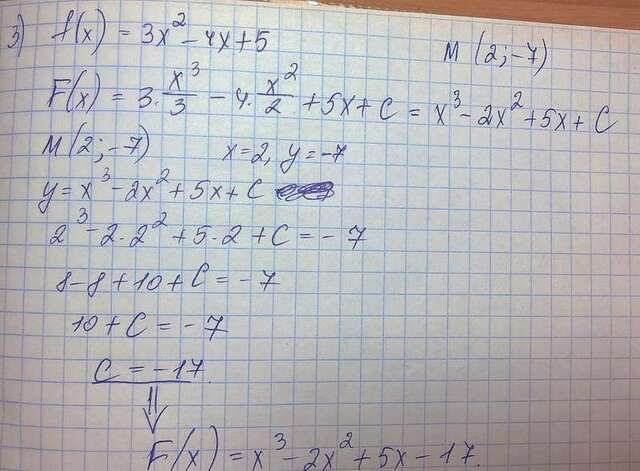 3) f(x) = 3x² - 4x + 5 M (2; -7)
F(x) = 3 · x³/3 - 4 · x²/2 + 5x + C = x³ - 2x² + 5x + C
M (2; -7) x = 2, y = -7
y = x³ - 2x² + 5x + C
2³ - 2 · 2² + 5 · 2 + C = -7
8 - 8 + 10 + C = -7
10 + C = -7
C = -17
⇓
F(x) = x³ - 2x² + 5x - 17.